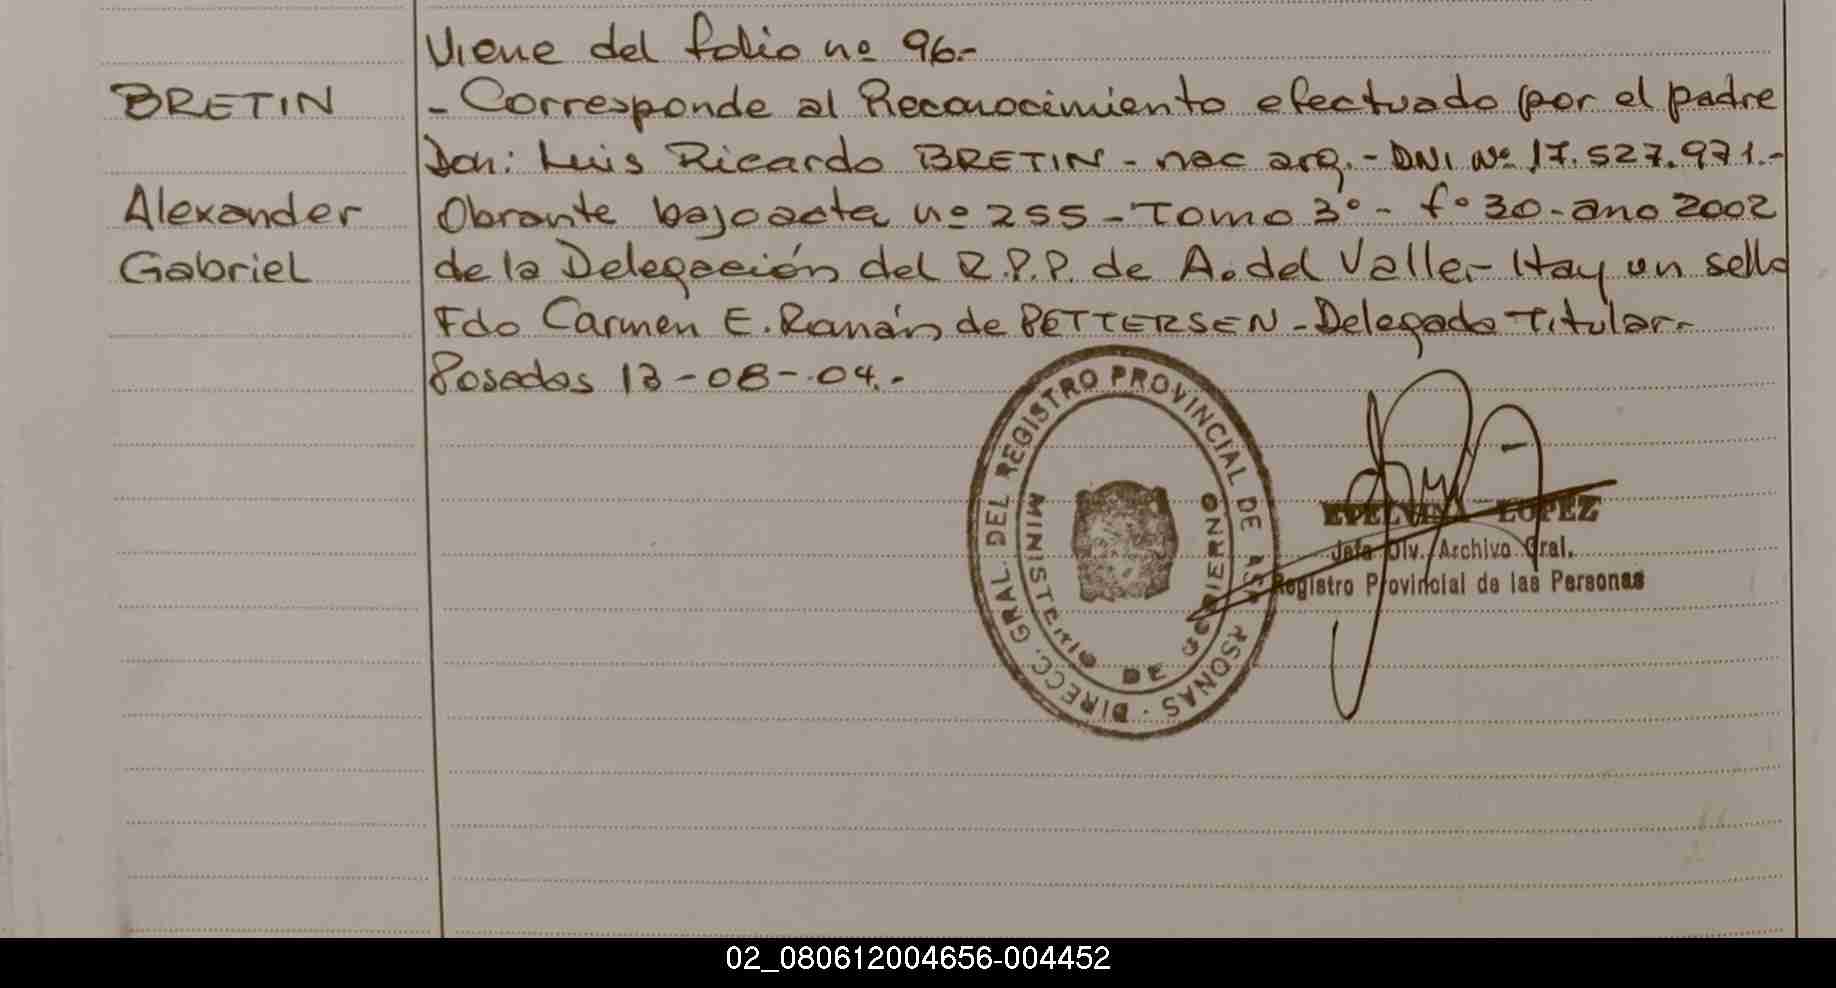 Viene del folio nº 96.-
BRETIN
- Corresponde al Reconocimiento efectuado por el padre
Don: Luis Ricardo BRETIN - nac arg. - DNI Nº 17.527.971.-
Alexander
Obrante bajo acta nº 255 - Tomo 3° - fº 30 - ano 2002
Gabriel
de la Delegación del R.P.P. de A. del Valle.- Hay un sello
Fdo Carmen E. Román de PETTERSEN - Delegada Titular.-
Posadas 13-08-04.-
DIRECC. GRAL. DEL REGISTRO PROVINCIAL DE
MINISTERIO DE GOBIERNO
LOPEZ
Jefa Div. Archivo Gral.
Registro Provincial de las Personas
02_080612004656-004452